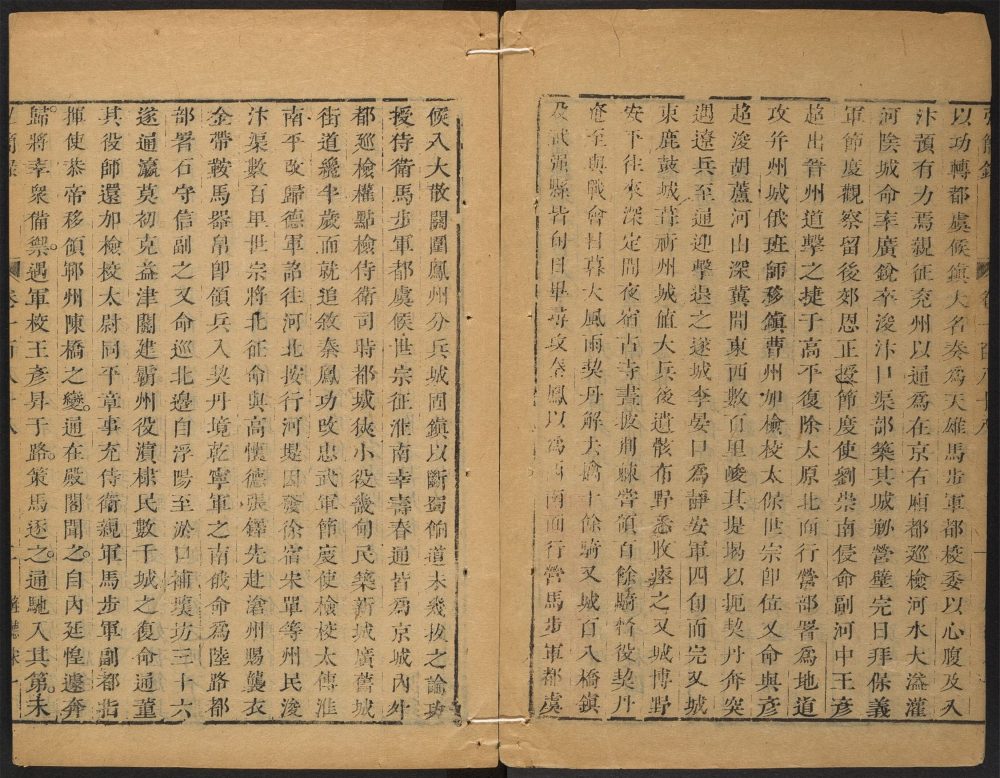 以功轉都虞候鎭大名奏爲天雄馬步軍都校委以心腹及入
汴預有力焉親征兖州以通爲在京右廂都巡檢河水大溢灌
河陰城命率廣銳卒浚汴口渠部築其城刱營壁完日拜保義
軍節度觀察留後郊恩正授節度使劉崇南侵命副河中王彥
超出晉州道擊之捷于高平復除太原北面行營部署爲地道
攻并州城俄班師移鎭曹州加檢校太保世宗卽位又命與彥
超浚胡蘆河山深冀間東西數百里峻其堤堨以扼契丹奔突
遇遼兵至通迎擊退之遂城李晏口爲靜安軍四旬而完又城
東鹿鼓城葺祈州城値大兵後遺骸布野悉收瘞之又城博野
安下往來深定間夜宿古寺晝披荆棘嘗領百餘騎督役契丹
奄至與戰會日暮大風雨契丹解去擒十餘騎又城百八橋鎭
及武强縣皆旬日畢尋攻秦鳳以爲西南面行營馬步軍都虞
候入大散關圍鳳州分兵城固鎭以斷蜀餉道未幾拔之論功
授侍衛馬步軍都虞候世宗征淮南幸壽春通皆爲京城內外
都巡檢權點檢侍衛司時都城狹小役畿甸民築新城廣舊城
街道纔半歲而就追敘秦鳳功改忠武軍節度使檢校太傳淮
南平改歸德軍詔往河北按行河堤因發徐宿宋單等州民浚
汴渠數百里世宗將北征命與高懷德張鐸先赴滄州賜襲衣
金帶鞍馬器帛卽領兵入契丹境乾寧軍之南俄命爲陸路都
部署石守信副之又命巡北邊自浮陽至淤口補壞坊三十六
遂通瀛莫初克益津關建霸州役濱棣民數千城之復命通董
其役師還加檢校太尉同平章事充侍衛親軍馬步軍副都指
揮使恭帝移領鄆州陳橋之變通在殿閣聞之自內廷惶遽奔
歸將率衆備禦遇軍校王彥昇于路策馬逐之通馳入其第未